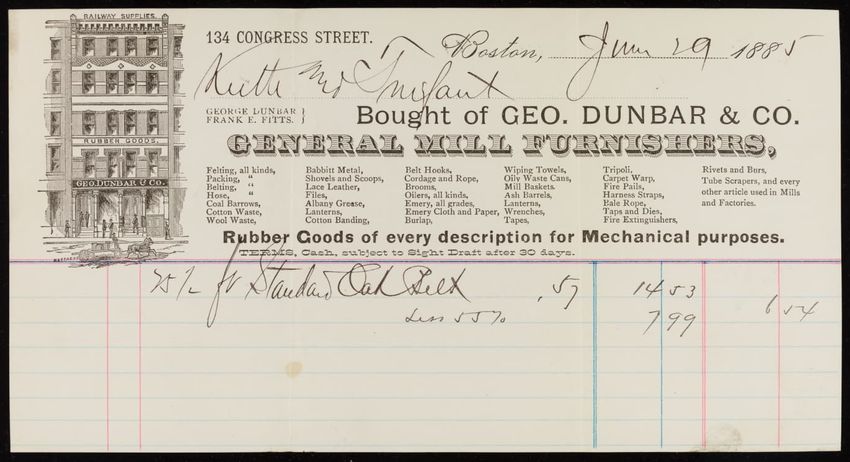 RAILWAY SUPPLIES.
RUBBER GOODS.
GEO. DUNBAR & CO.
134 CONGRESS STREET.
Boston, June 29 1885
Keith
GEORGE DUNBAR }
FRANK E. FITTS. }
Bought of GEO. DUNBAR & CO.
GENERAL MILL FURNISHERS,
Felting, all kinds,
Packing, "
Belting, "
Hose, "
Coal Barrows,
Cotton Waste,
Wool Waste,
Babbitt Metal,
Shovels and Scoops,
Lace Leather,
Files,
Albany Grease,
Lanterns,
Cotton Banding,
Belt Hooks,
Cordage and Rope,
Brooms,
Oilers, all kinds,
Emery, all grades,
Emery Cloth and Paper,
Burlap,
Wiping Towels,
Oily Waste Cans,
Mill Baskets.
Ash Barrels,
Lanterns,
Wrenches,
Tapes,
Tripoli,
Carpet Warp,
Fire Pails,
Harness Straps,
Bale Rope,
Taps and Dies,
Fire Extinguishers,
Rivets and Burs,
Tube Scrapers, and every
other article used in Mills
and Factories.
Rubber Goods of every description for Mechanical purposes.
TERMS, Cash, subject to Sight Draft after 30 days.
25½ ft Standard Oak Belt .57 14 53
Less 55% 7 99 6 54